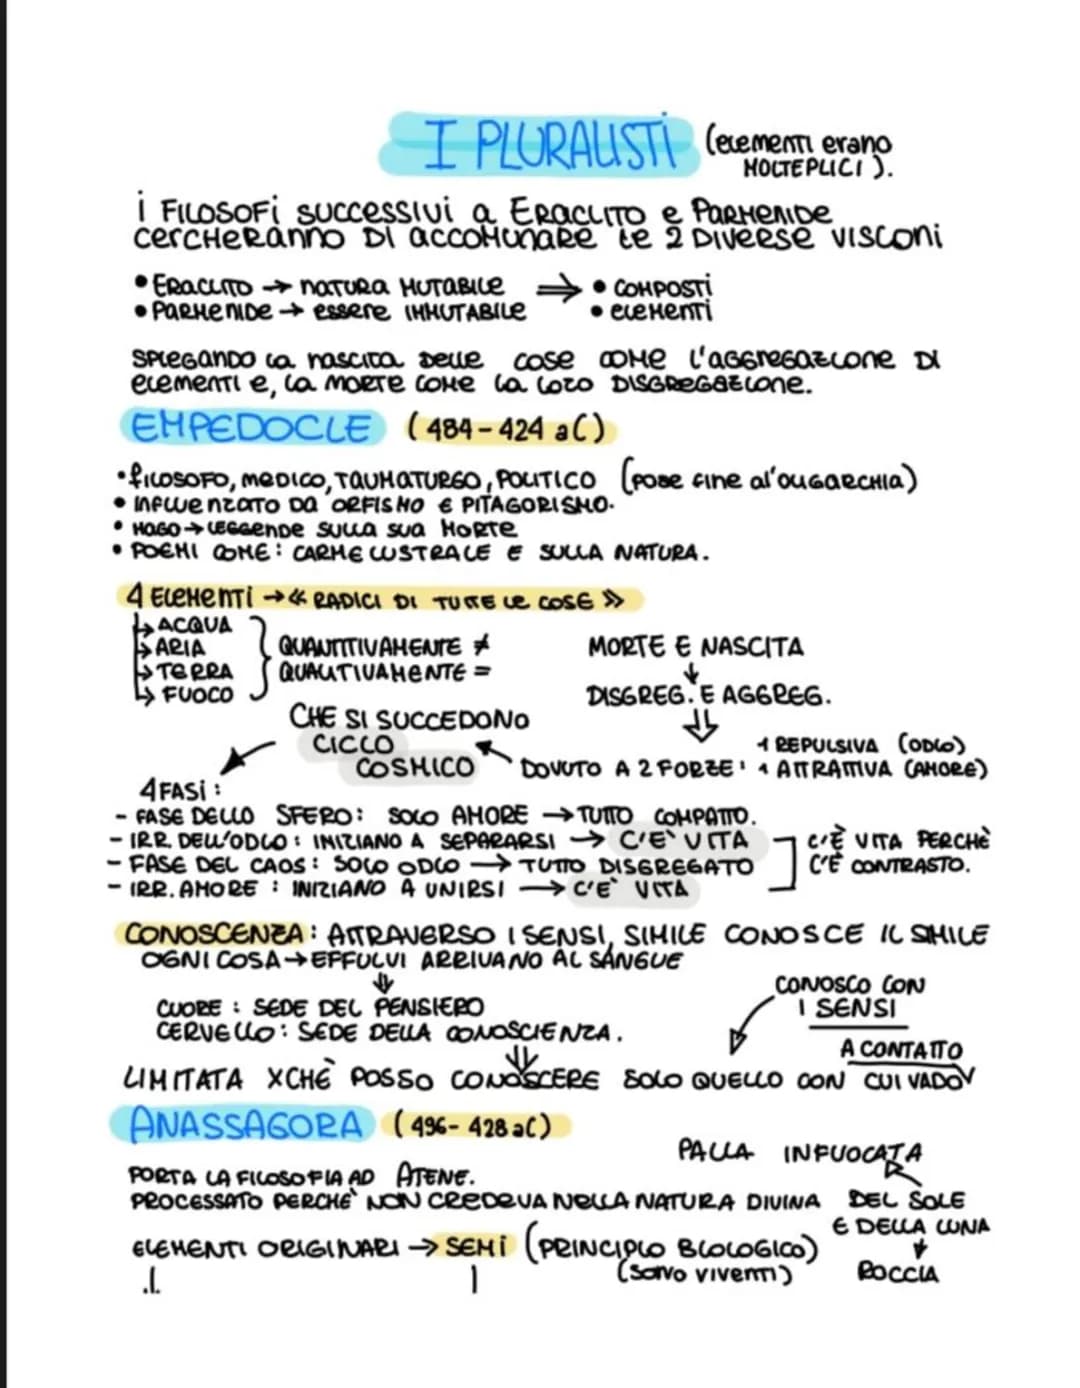 I PLURALISTI (elementi erano
MOLTEPLICI).
i FILOSOFi SUCCESSIVI a ERACLITO e PARMENIDE
CERCHERANNO DI ACCOMUNARE le 2 DIVERSE VISCONI
• ERACLITO → NATURA MUTABILE ⇒ • COMPOSTI
• PARMENIDE → essere IMMUTABILE • elementi
SPIEGANDO la nascita DELLE COSE COME l'AGGREGAZIONE DI
elementi e, la MORTE COME la loro DISGREGAZIONE.
EMPEDOCLE (484-424 aC)
• filosofo, medico, TAUMATURGO, POLITICO (pose fine al'OLIGARCHIA)
• INFLUENZATO DA ORFISMO E PITAGORISMO.
• MAGO → LEGGENDE SULLA SUA MORTE
• POEMI COME: CARME LUSTRALE E SULLA NATURA.
4 ELEMENTI → « RADICI DI TUTTE LE COSE »
↳ ACQUA
↳ ARIA QUANTITIVAMENTE ≠ MORTE E NASCITA
↳ TERRA QUALITIVAMENTE =
↳ FUOCO DISGREG. E AGGREG.
CHE SI SUCCEDONO
CICLO 1 REPULSIVA (ODIO)
COSMICO DOVUTO A 2 FORZE: 1 ATTRATTIVA (AMORE)
4 FASI:
- FASE DELLO SFERO: SOLO AMORE → TUTTO COMPATTO.
- IRR. DELL'ODIO: INIZIANO A SEPARARSI → C'E' VITA C'È VITA PERCHÈ
- FASE DEL CAOS: SOLO ODIO → TUTTO DISGREGATO C'É CONTRASTO.
- IRR. AMORE: INIZIANO A UNIRSI → C'E' VITA
CONOSCENZA: ATTRAVERSO I SENSI, SIMILE CONOSCE IL SIMILE
OGNI COSA → EFFULVI ARRIVANO AL SANGUE
CONOSCO CON
CUORE: SEDE DEL PENSIERO I SENSI
CERVELLO: SEDE DELLA CONOSCIENZA.
A CONTATTO
LIMITATA XCHÉ POSSO CONOSCERE SOLO QUELLO CON CUI VADO
ANASSAGORA (496-428 aC)
PALLA INFUOCATA
PORTA LA FILOSOFIA AD ATENE.
PROCESSATO PERCHE' NON CREDEVA NELLA NATURA DIVINA DEL SOLE
E DELLA LUNA
ELEMENTI ORIGINARI → SEMI (PRINCIPIO BIOLOGICO)
(SONO VIVENTI) ROCCIA